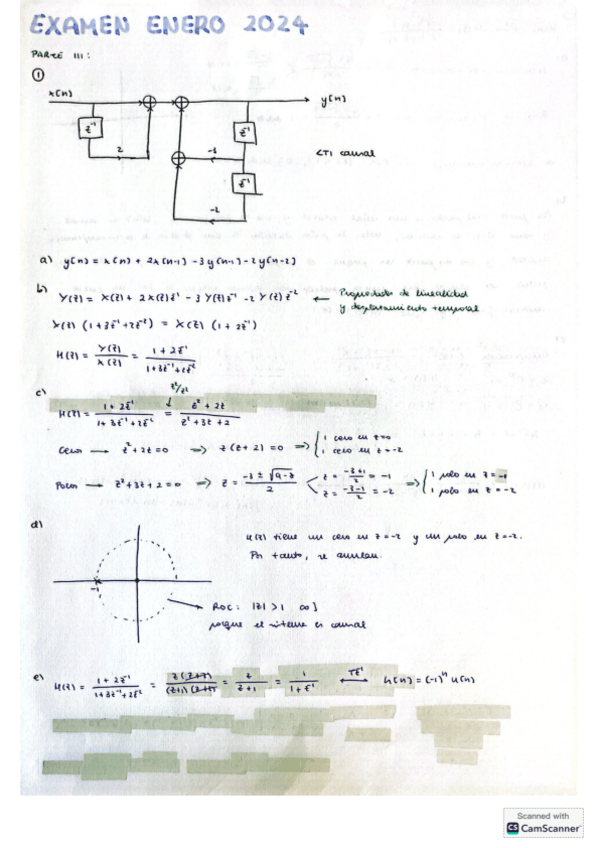 EXAMEN ENERO 2024
PARTE III:
①
x[n]
y[n]
z⁻¹
2
z⁻¹
-3
z⁻¹
-2
LTI causal
a) y[n] = x[n] + 2x[n-1] - 3y[n-1] - 2y[n-2]
b) Y(z) = X(z) + 2X(z)z⁻¹ - 3Y(z)z⁻¹ - 2Y(z)z⁻² ← Propiedades de linealidad
y desplazamiento temporal
Y(z) (1+3z⁻¹+2z⁻²) = X(z) (1+2z⁻¹)
H(z) = Y(z)/X(z) = (1+2z⁻¹)/(1+3z⁻¹+2z⁻²)
z²/z²
c) H(z) = (1+2z⁻¹)/(1+3z⁻¹+2z⁻²) = (z²+2z)/(z²+3z+2)
Ceros → z²+2z=0 => z(z+2)=0 => { 1 cero en z=0
1 cero en z=-2
Polos → z²+3z+2=0 => z = (-3±√(9-8))/2 < z = (-3+1)/2 = -1
z = (-3-1)/2 = -2 => { 1 polo en z=-1
1 polo en z=-2
d) H(z) tiene un cero en z=-2 y un polo en z=-2.
Por tanto, se anulan.
-1
ROC: |z|>1 ∞]
porque el sistema es causal
e) H(z) = (1+2z⁻¹)/(1+3z⁻¹+2z⁻²) = z(z+2)/((z+1)(z+2)) = z/(z+1) = 1/(1+z⁻¹) TZ⁻¹ ⟷ h[n] = (-1)ⁿ u[n]
Scanned with
CS CamScanner